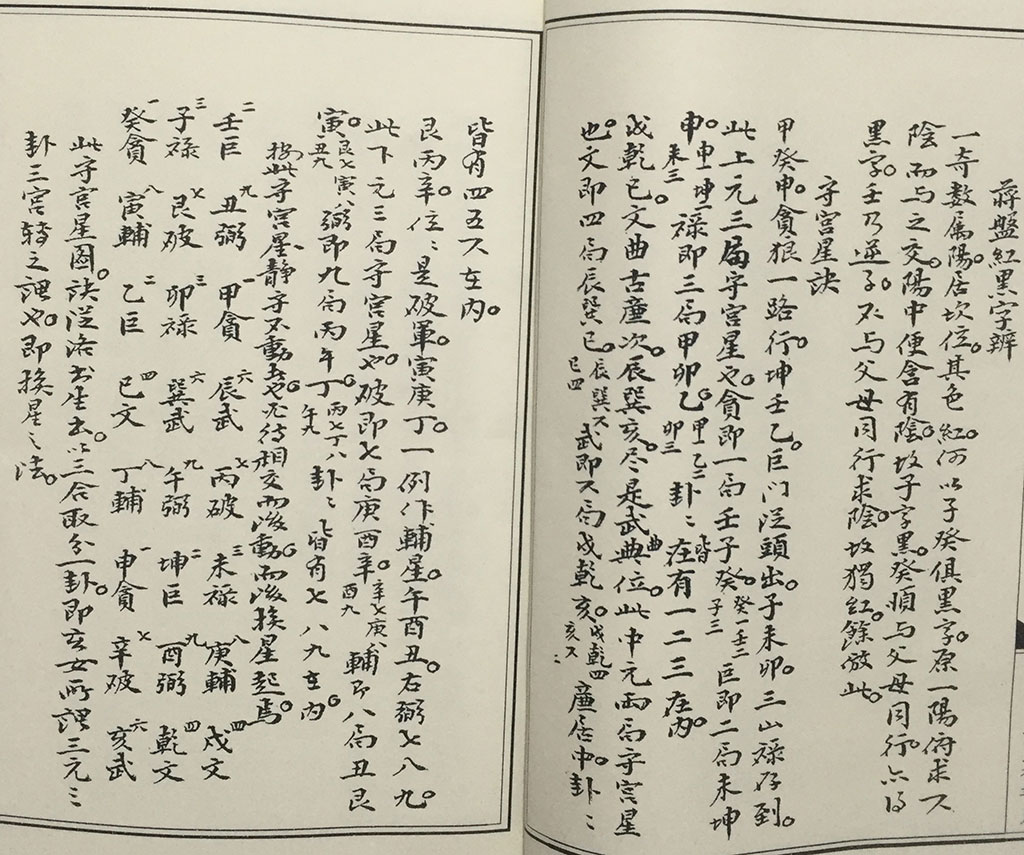 蔣盤紅黑字辨
一奇數屬陽。居坎位。其色紅。何以子癸俱黑字。原一陽俯求人
陰而与之交。陽中便含有陰。故子字黑。癸順与父母同行。亦得
黑字。壬乃逆子。不与父母同行求陰。故獨紅。餘倣此。
守宮星訣
甲癸申。貪狼一路行。坤壬乙。巨门從頭出。子未卯。三山祿存到。
此上元三局守宮星也。貪即一局壬子癸。癸一壬二子三巨即二局未坤
申。申一坤二未三祿即三局甲卯乙。甲一乙二卯三卦卦皆在有一二三在內。
戌乾巳。文曲古重次。辰巽亥。尽是武曲位。此中元兩局守宮星
也。文即四局辰巽巳。辰巽六巳四武即六局戌乾亥。戌乾四亥六廉居中。卦卦
皆有四五六在內。
艮丙辛。位位是破軍。寅庚丁。一例作輔星。午酉丑。右弼七八九。
此下元三局守宮星也。破即七局庚酉辛。辛七庚八酉九輔即八局丑艮
寅。艮七寅八丑九弼即九局丙午丁。丙七丁八午九卦卦皆有七八九在內。
按此守宮星静守不動者也。必待相交而後動。而後挨星起焉。
二壬巨 九丑弼 一甲貪 六辰武 七丙破 三未祿 八庚輔 四戌文
三子祿 七艮破 三卯祿 六巽武 九午弼 二坤巨 九酉弼 四乾文
一癸貪 八寅輔 二乙巨 四巳文 八丁輔 一申貪 七辛破 六亥武
此守宮星圖。訣從洛书生去。以三合取分一卦。即玄女所謂三元三
卦三宮轉之謂也。即挨星之法。